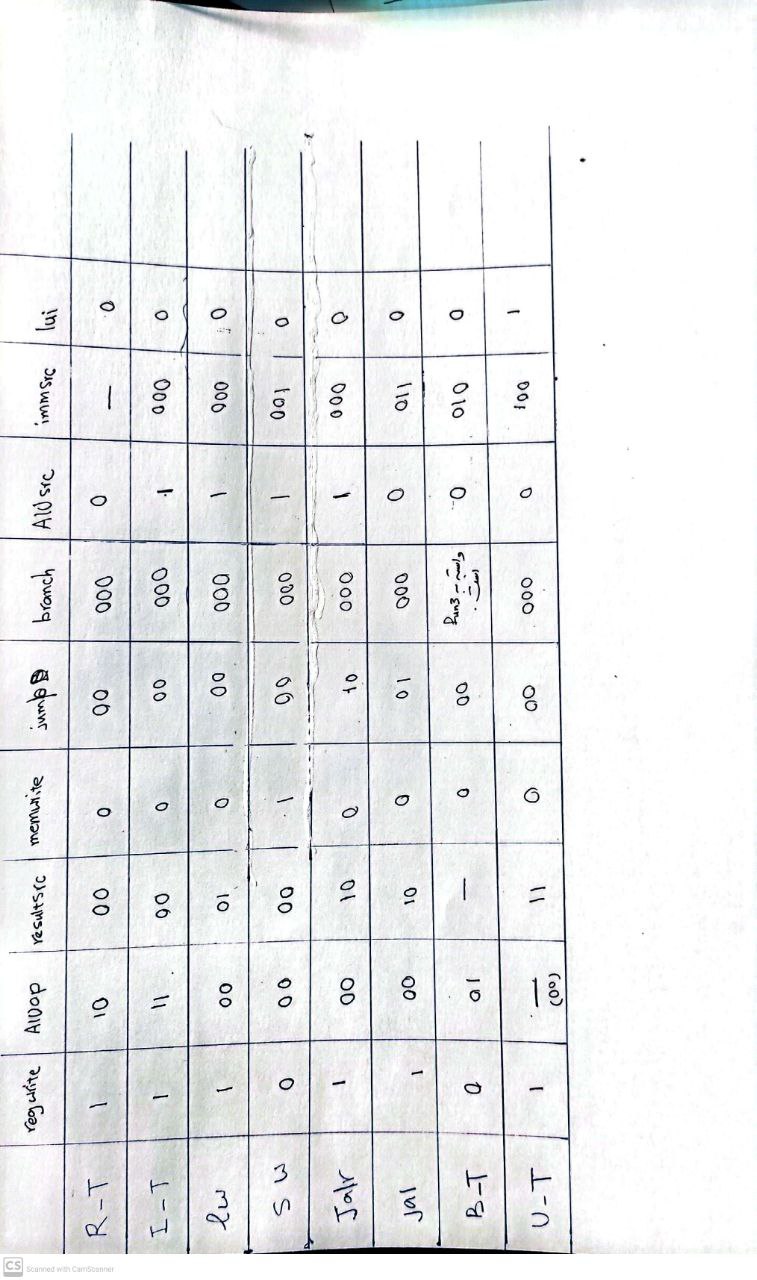 regwrite AlUop resultsrc memwrite jump branch AlUsrc immsrc lui
R-T 1 10 00 0 00 000 0 — 0
I-T 1 11 00 0 00 000 1 000 0
lw 1 00 01 0 00 000 1 000 0
SW 0 00 00 1 00 000 1 001 0
Jalr 1 00 10 0 10 000 1 000 0
jal 1 00 10 0 01 000 0 011 0
B-T 0 01 — 0 00 fun3 0 010 0
U-T 1 — 11 0 00 000 0 100 1
(00)
CS Scanned with CamScanner